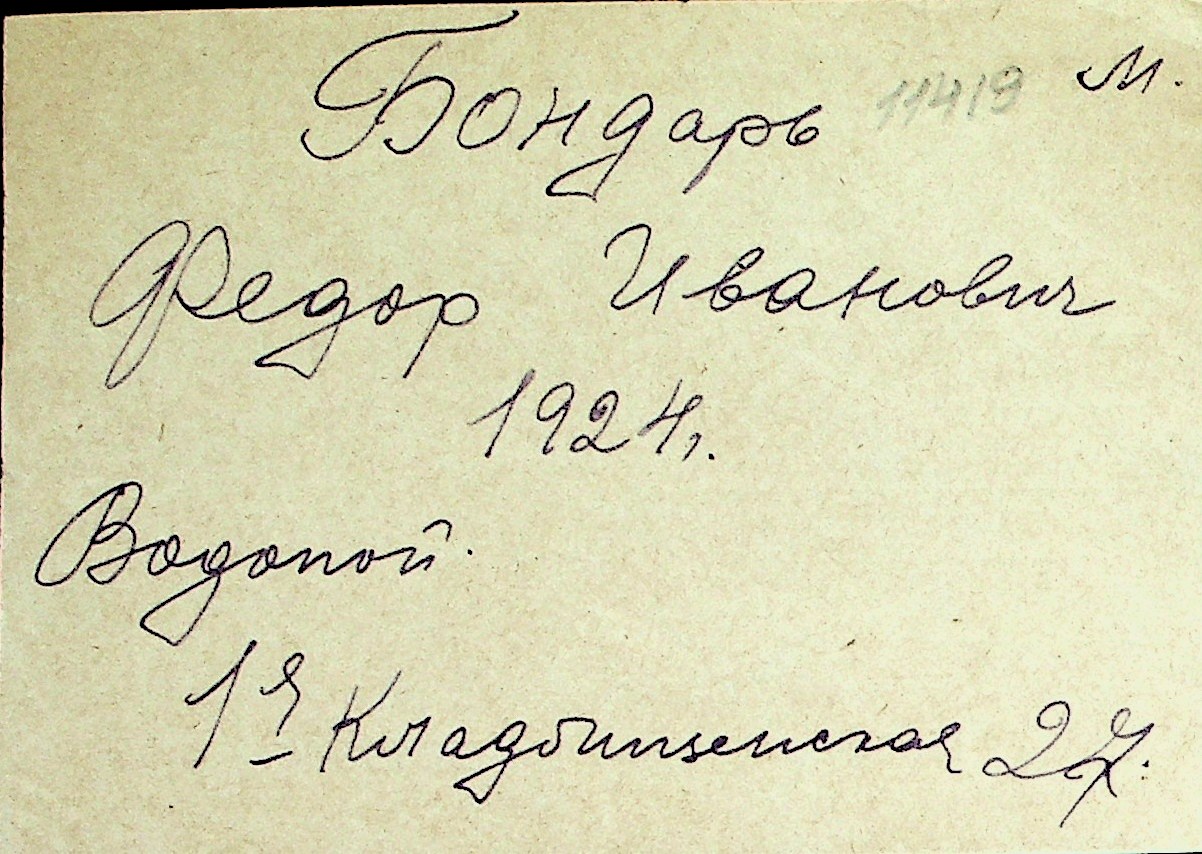 Бондарь 11419 м.
Федор Иванович
1924г.
Водопой.
1я Кладбищенская 27.